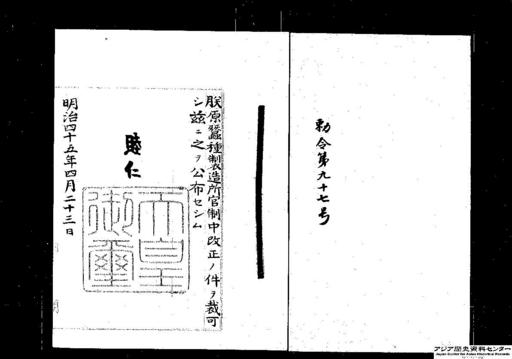 勅令第九十七号
朕原蚕種製造所官制中改正ノ件ヲ裁可
シ茲ニ之ヲ公布セシム
睦仁
天皇御璽
明治四十五年四月二十三日
アジア歴史資料センター
Japan Center for Asian Historical Records